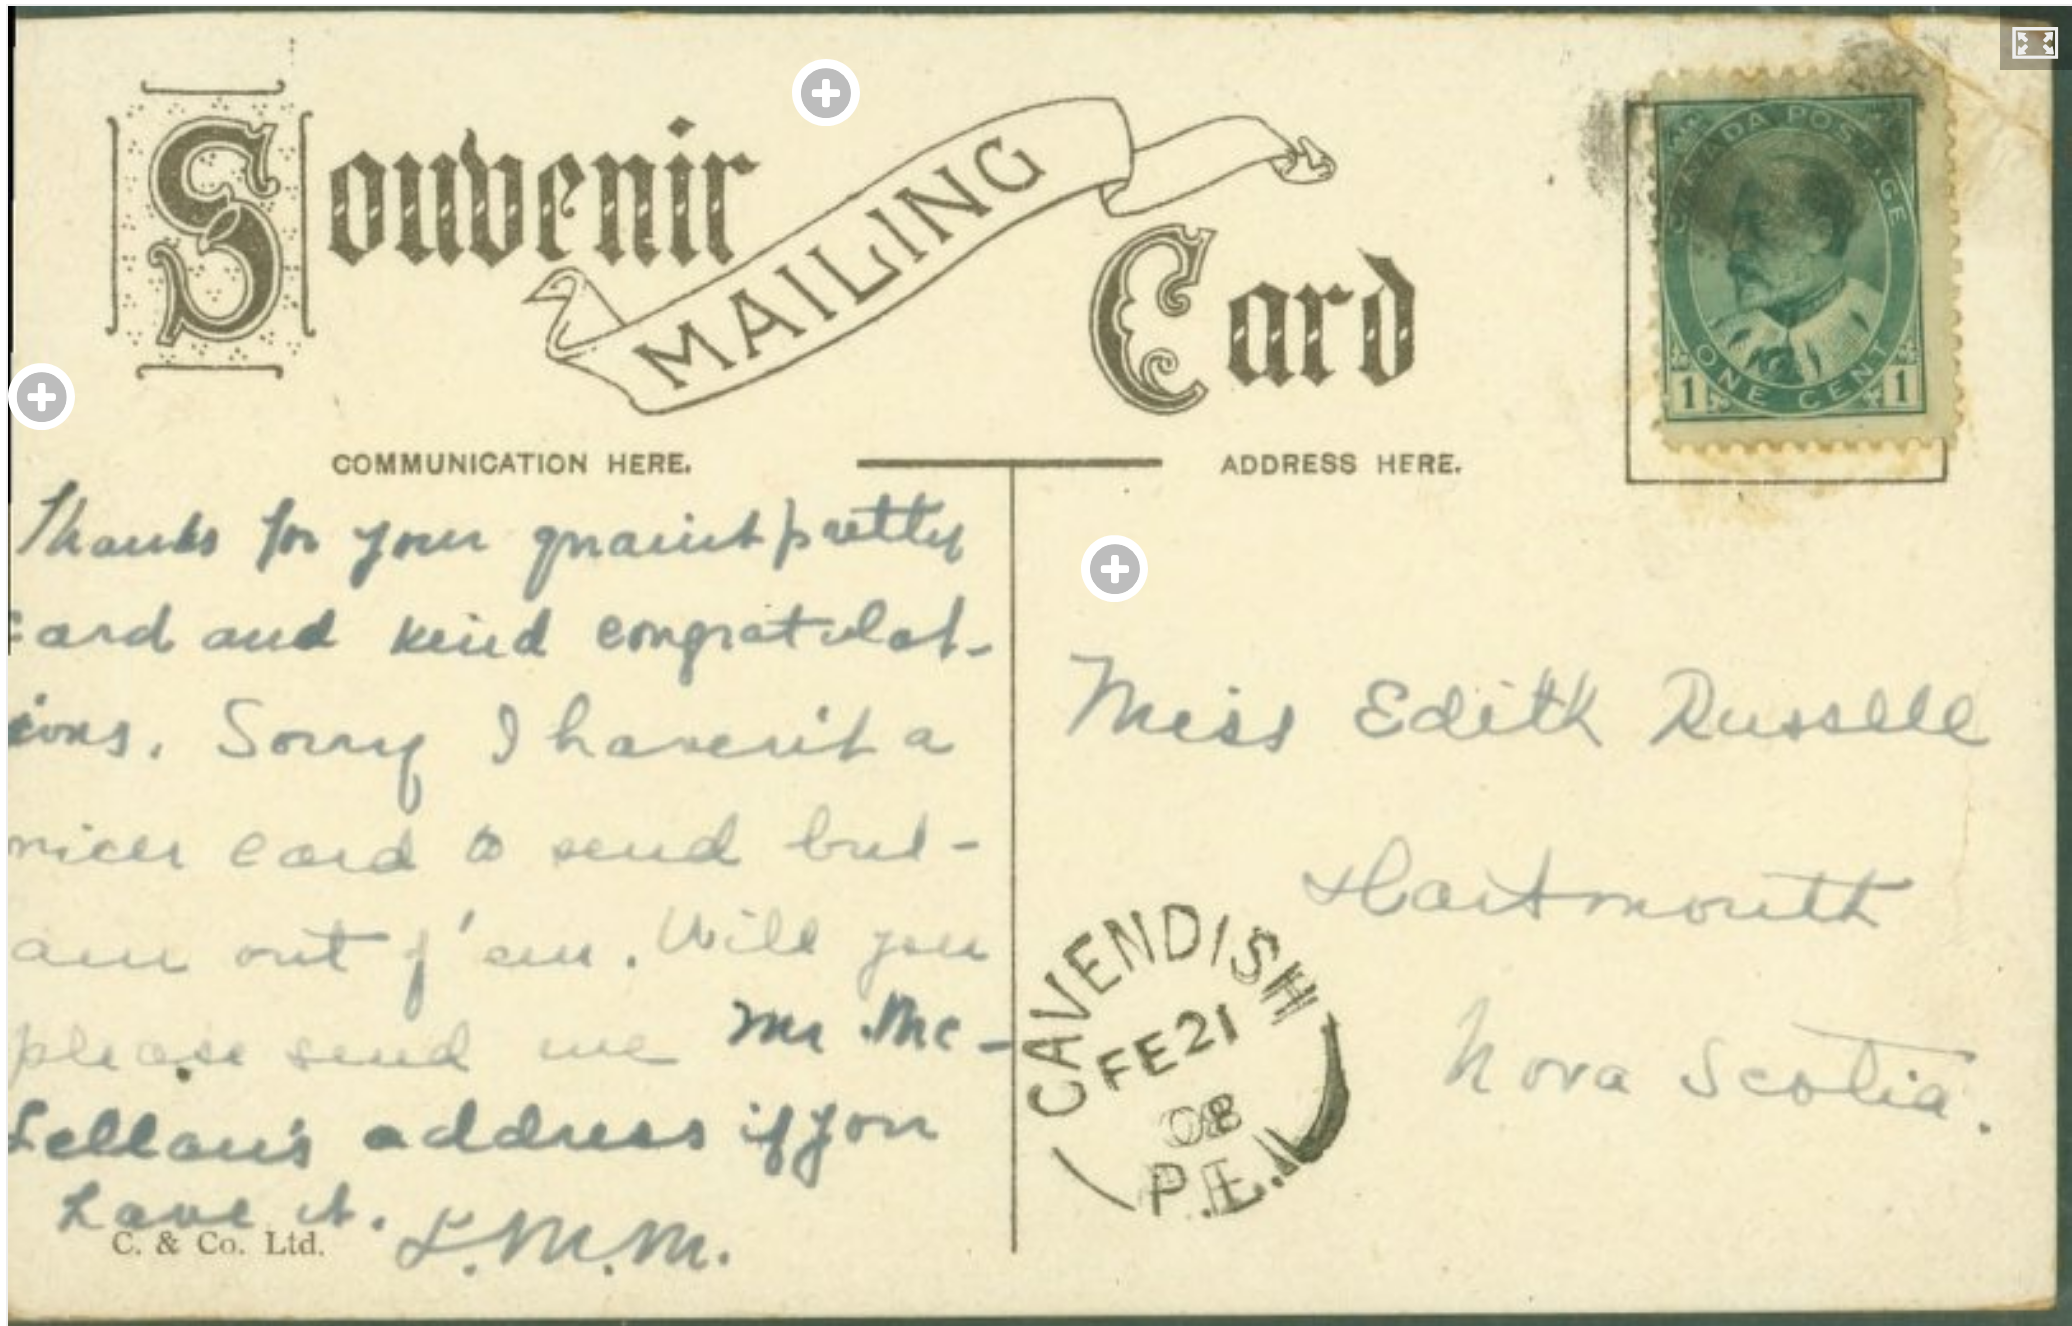 Souvenir
MAILING
Card
CANADA POSTAGE
ONE CENT
1 1
COMMUNICATION HERE.
ADDRESS HERE.
Thanks for your quaint pretty
card and kind congratulat-
ions. Sorry I haven't a
nicer card to send but -
am out of 'em. Will you
please send me Mr. Mc-
Lellan's address if you
have it. L.M.M.
C. & Co. Ltd.
Miss Edith Russell
Dartmouth
Nova Scotia.
CAVENDISH
FE 21
08
P.E.I.